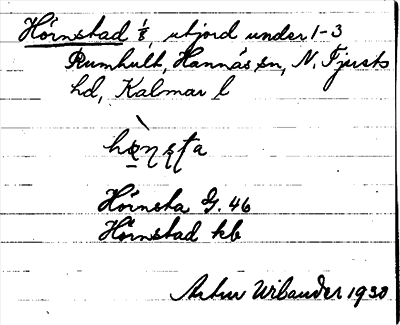 Hörnstad 1/8, utjord under 1-3
Rumhult, Hannäs sn, N. Tjusts
hd, Kalmar l
Hörnsta G. 46
Hörnstad kb
Artur Urbander 1930